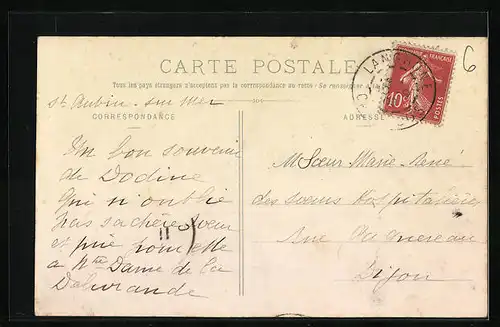 CARTE POSTALE
Tous les pays étrangers n'acceptent pas la correspondance au recto
St Aubin sur Mer
CORRESPONDANCE
Un bon souvenir
de Dodine
qui n'oublie
pas sa chère sœur
et prie pour elle
a Nte Dame de la
Delivrande
ADRESSE
M Sœur Marie-René
des sœurs Hospitalières
Rue
Dijon
FRANÇAISE
POSTES
10c
LANGRUNE
6